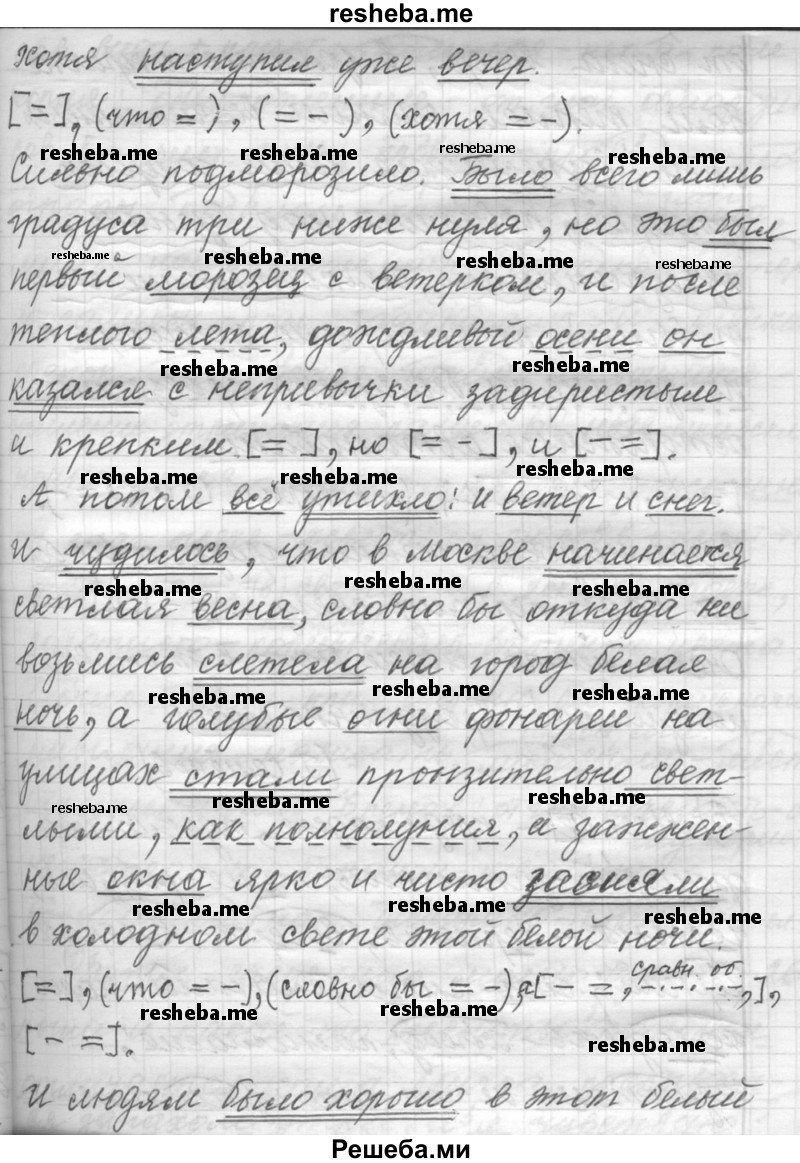 resheba.me
хотя наступил уже вечер.
[=], (что =), (= -), (хотя = -).
resheba.me resheba.me resheba.me resheba.me
Сильно подморозило. Было всего лишь
градуса три ниже нуля, но это был
resheba.me resheba.me resheba.me resheba.me
первый морозец с ветерком, и после
теплого лета, дождливый осени он
resheba.me resheba.me
казался с непривычки задиристым
и крепким [= ], но [= -], и [- =].
resheba.me resheba.me resheba.me
А потом всё утихло: и ветер и снег.
И чудилось, что в Москве начинается
resheba.me resheba.me resheba.me
светлая весна, словно бы откуда ни
возьмись слетела на город белая
resheba.me resheba.me resheba.me
ночь, а голубые огни фонарей на
улицах стали пронзительно свет-
resheba.me resheba.me resheba.me
лыми, как полнолуния, а зажжен-
ные окна ярко и чисто засияли
resheba.me resheba.me resheba.me
в холодном свете этой белой ночи.
сравн. об.
[=], (что = -), (словно бы = -), а [- =, -.-.-.-, ],
resheba.me resheba.me
[- =].
resheba.me
И людям было хорошо в этот белый
Решеба.ми